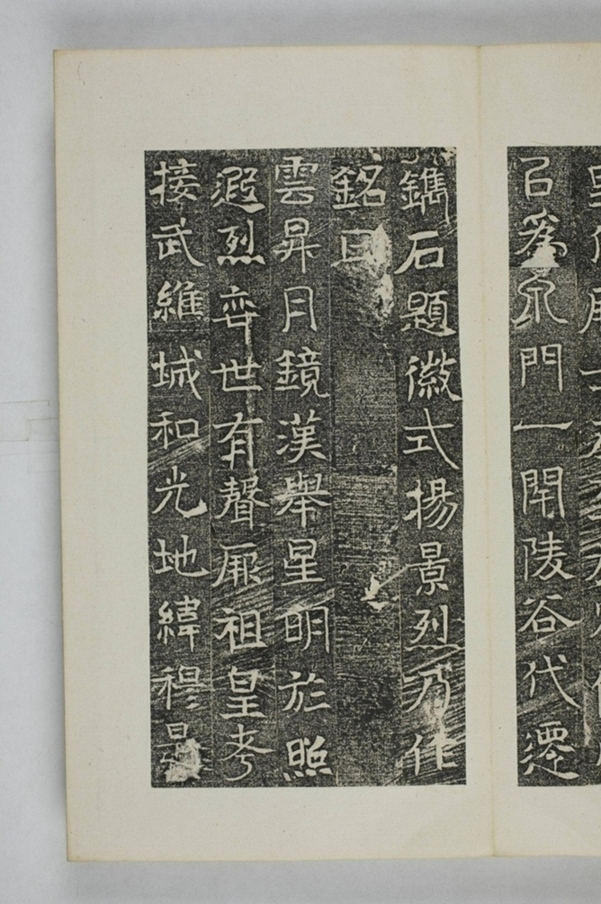 㠯為泉門一閇陵谷代遷
鐫石題徽式揚景烈乃作
銘曰
雲昇月鏡漢舉星明於照
遐烈弈世有聲厥祖皇考
接武維城和光地緯穆